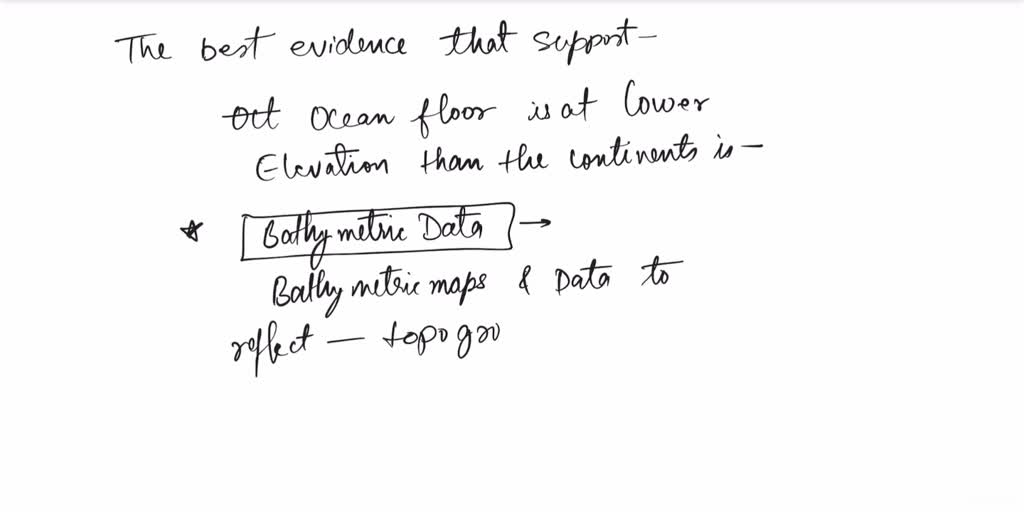 The best evidence that support-
Oct Ocean floor is at Lower
Elevation than the continents is -
* Bathymetric Data →
Bathymetric maps & Data to
reflect - topogra